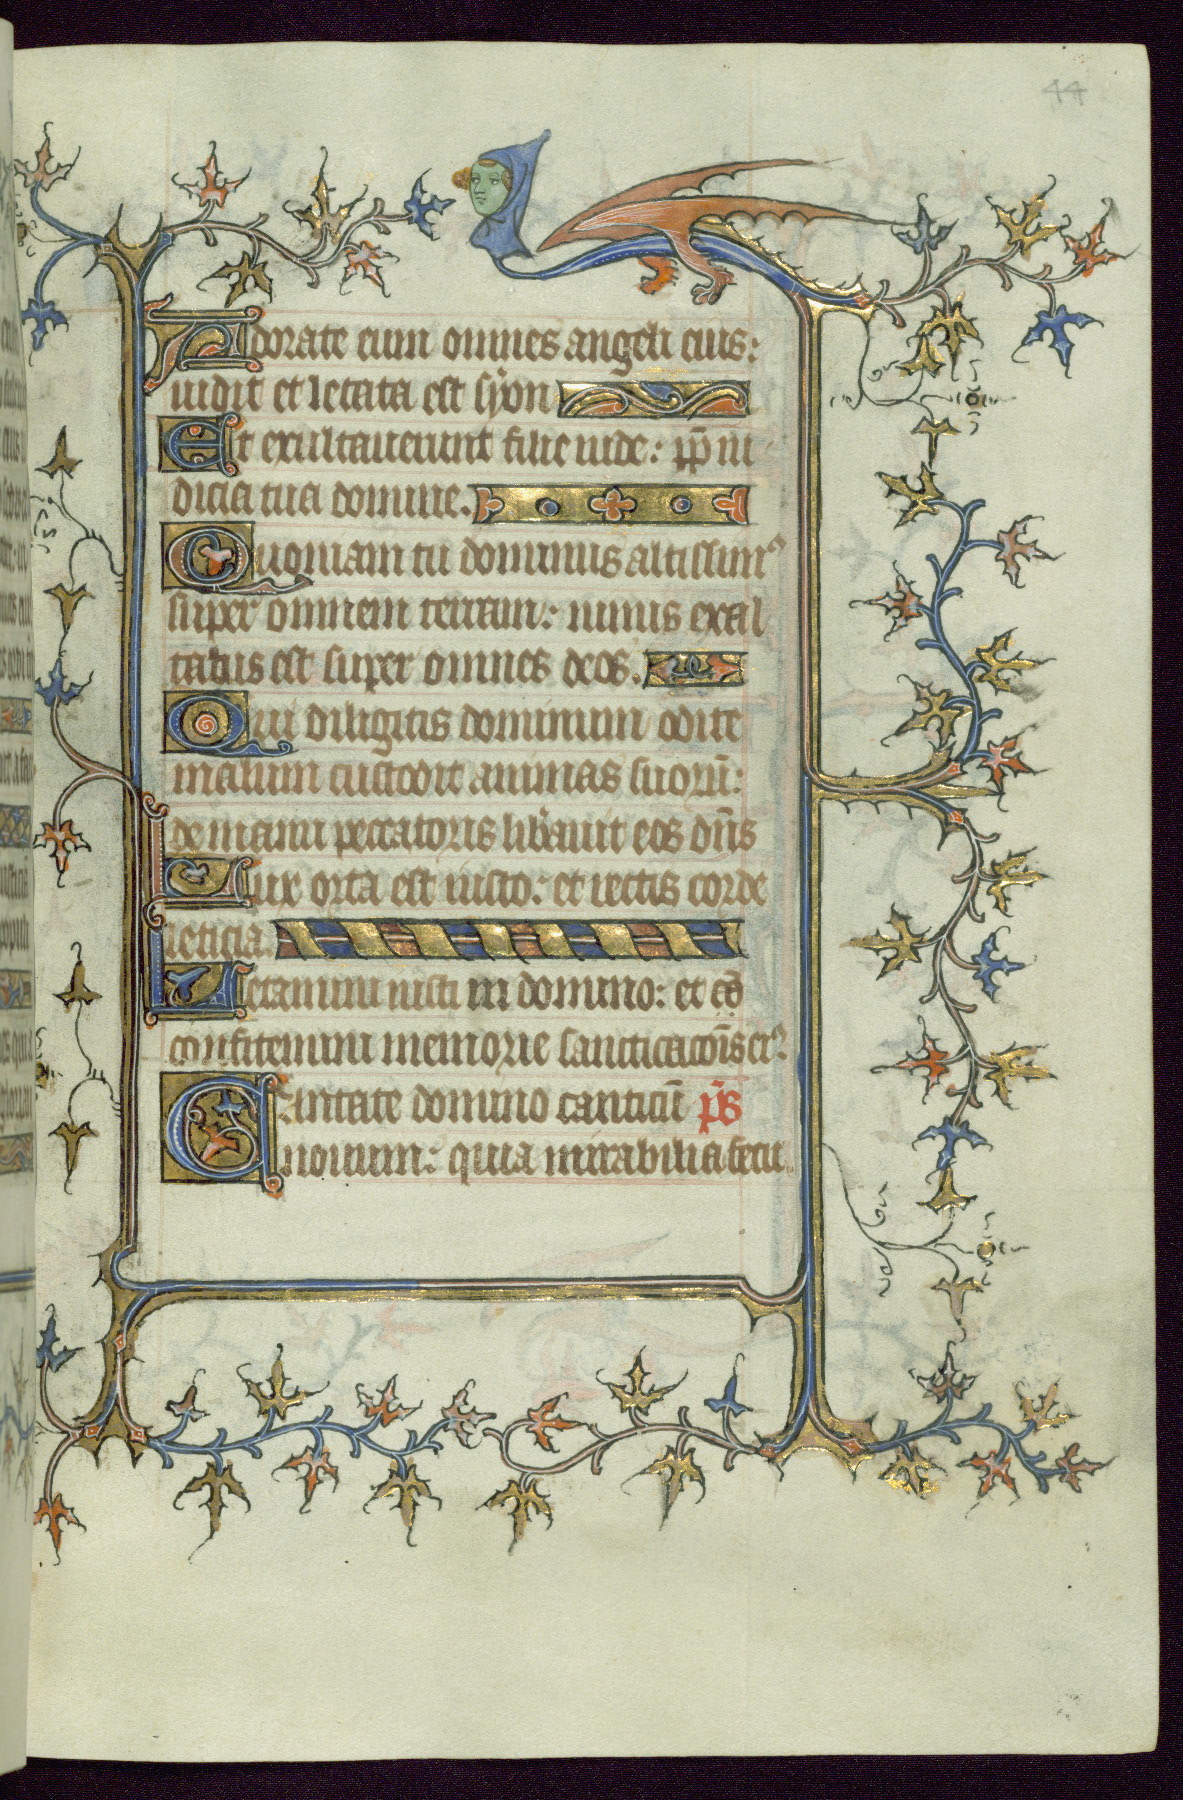 44
Adorate eum omnes angeli eius:
uidit et letata est syon
Et exultauerunt filie iude: pp̄ iu
dicia tua domine.
Quoniam tu dominus altissimꝰ
super omnem terram: nimis exal
tatus est super omnes deos.
Qui diligitis dominum odite
malum custodit animas suoꝝ̄:
de manu peccatoris lib̄auit eos dn̄s
Lux orta est iusto: et rectis corde
leticia.
Letamini iusti in domino: et cō
confitemini memorie sanctificacōis eiꝰ.
Cantate domino canticū p̄s
nouum: quia mirabilia fecit.